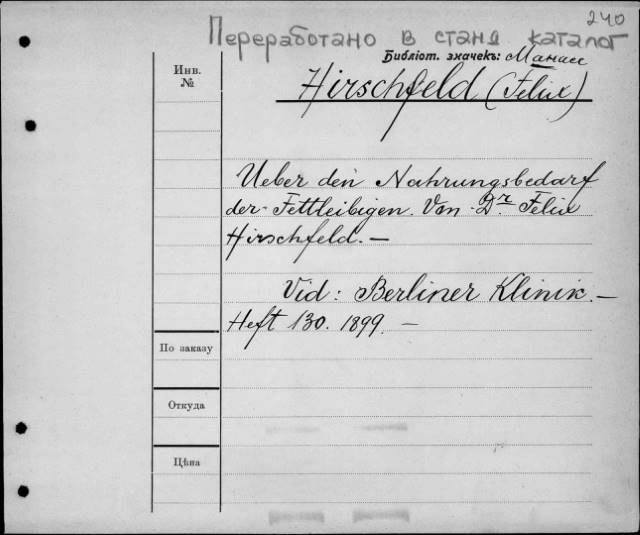 240
Переработано в станд каталог
Библіот. значекъ: Манасс
Инв.
№
Hirschfeld (Felix)
Ueber den Nahrungsbedarf
der Fettleibigen. Von Dr. Felix
Hirschfeld. —
Vid: Berliner Klinik. —
Heft 130. 1899. —
По заказу
Откуда
Цѣна